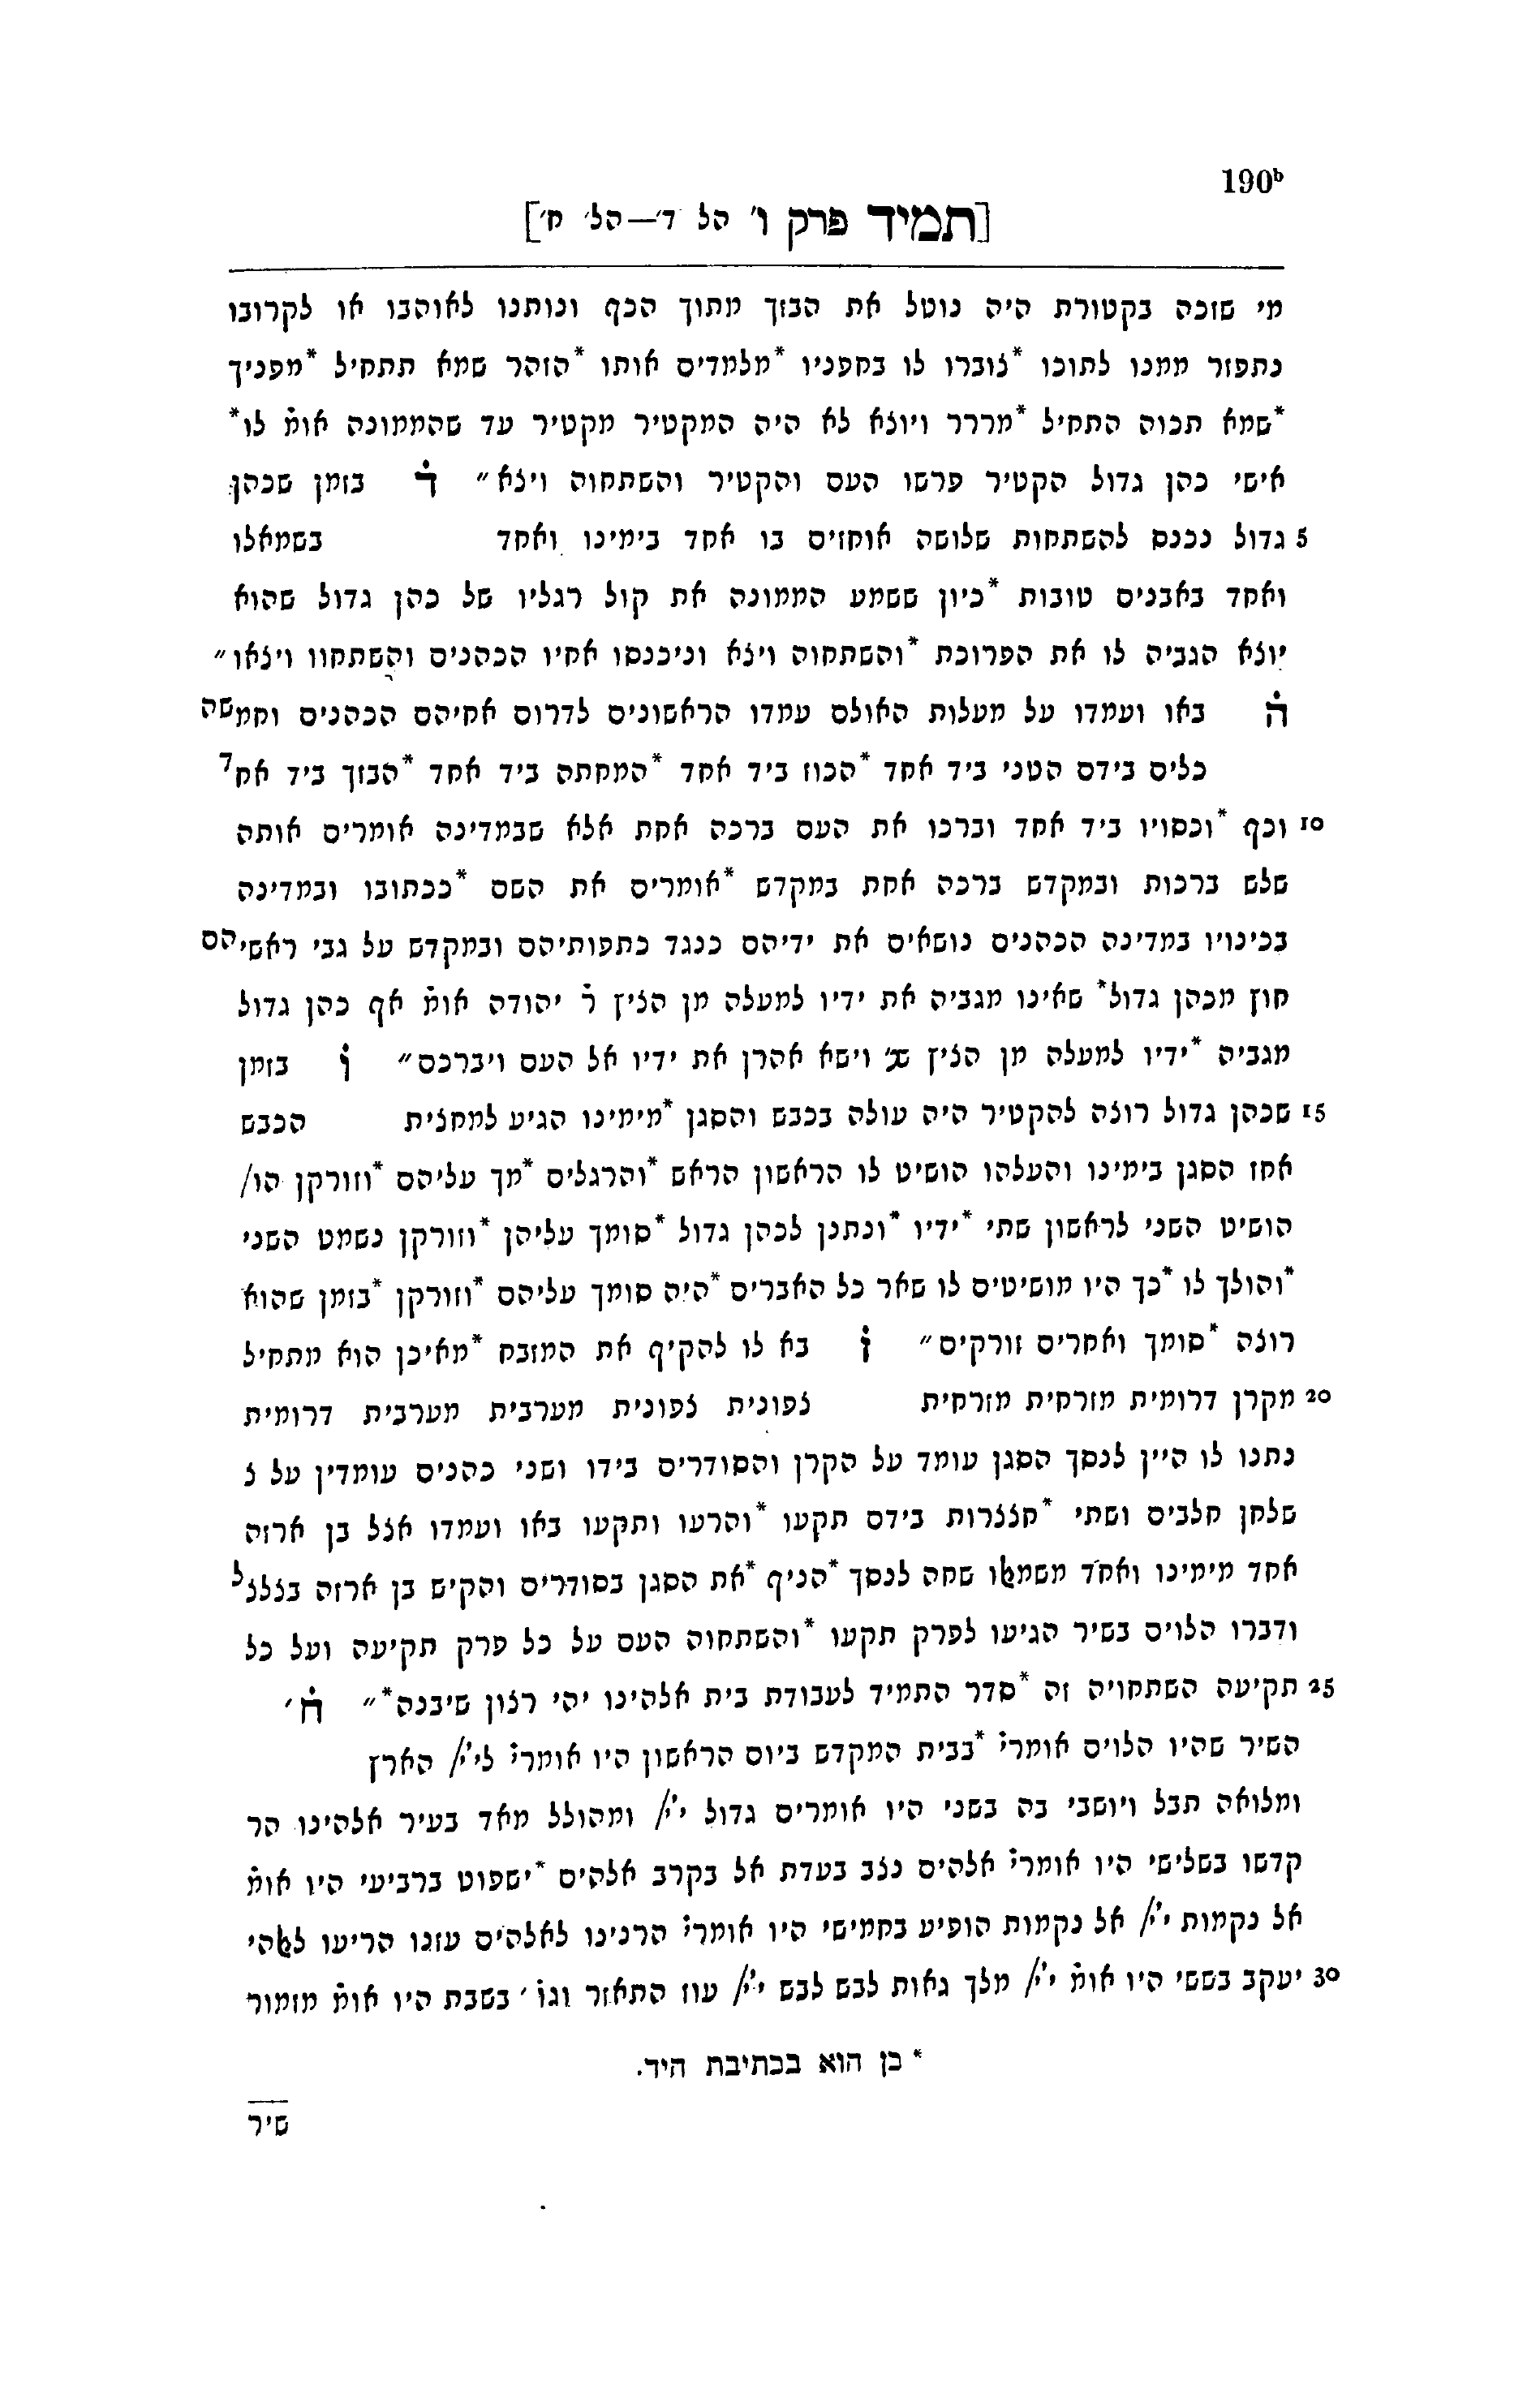 190ᵇ
[תמיד פרק ו׳ הל ד׳—הל׳ ח׳]
מי שזכה בקטורת היה נוטל את הבזך מתוך הכף ונותנו לאוהבו או לקרובו
נתפזר ממנו לתוכו *צוברו לו בחפניו *מלמדים אותו *הזהר שמא תתחיל *מפניך
*שמא תכוה התחיל *מררר ויוצא לא היה המקטיר מקטיר עד שהממונה אומ̇ לו*
אישי כהן גדול הקטיר פרשו העם והקטיר והשתחוה ויצא״ ד̇ בזמן שכהן
5 גדול נכנס להשתחות שלושה אוחזים בו אחד בימינו ואחד בשמאלו
ואחד באבנים טובות *כיון ששמע הממונה את קול רגליו של כהן גדול שהוא
יוצא הגביה לו את הפרוכת *והשתחוה ויצא וניכנסו אחיו הכהנים והשתחוו ויצאו״
ה̇ באו ועמדו על מעלות האולם עמדו הראשונים לדרום אחיהם הכהנים וחמשה
כלים בידם הטני ביד אחד *הכוז ביד אחד *המחתה ביד אחד *הבזך ביד אחד
10 וכף *וכסויו ביד אחד וברכו את העם ברכה אחת אלא שבמדינה אומרים אותה
שלש ברכות ובמקדש ברכה אחת במקדש *אומרים את השם *ככתובו ובמדינה
בכינויו במדינה הכהנים נושאים את ידיהם כנגד כתפותיהם ובמקדש על גבי ראשיהם
חוץ מכהן גדול* שאינו מגביה את ידיו למעלה מן הציץ ר̇ יהודה אומ̇ אף כהן גדול
מגביה *ידיו למעלה מן הציץ שנ׳ וישא אהרן את ידיו אל העם ויברכם״ ו̇ בזמן
15 שכהן גדול רוצה להקטיר היה עולה בכבש והסגן *מימינו הגיע למחצית הכבש
אחז הסגן בימינו והעלהו הושיט לו הראשון הראש *והרגלים *מך עליהם *וזורקן הו/
הושיט השני לראשון שתי *ידיו *ונתנן לכהן גדול *סומך עליהן *וזורקן נשמט השני
*והולך לו *כך היו מושיטים לו שאר כל האברים *היה סומך עליהם *וזורקן *בזמן שהוא
רוצה *סומך ואחרים זורקים״ ז̇ בא לו להקיף את המזבח *מאיכן הוא מתחיל
20 מקרן דרומית מזרחית מזרחית צפונית צפונית מערבית מערבית דרומית
נתנו לו היין לנסך הסגן עומד על הקרן והסודרים בידו ושני כהנים עומדין על צ
שלחן חלבים ושתי *חצצרות בידם תקעו *והרעו ותקעו באו ועמדו אצל בן ארזה
אחד מימינו ואחד משמאלו שחה לנסך *הניף *את הסגן בסודרים והקיש בן ארזה בצלצל
ודברו הלוים בשיר הגיעו לפרק תקעו *והשתחוה העם על כל פרק תקיעה ועל כל
25 תקיעה השתחויה זה *סדר התמיד לעבודת בית אלהינו יהי רצון שיבנה*״ ח̇׳
השיר שהיו הלוים אומרי̇ *בבית המקדש ביום הראשון היו אומרי̇ לי׳י/ הארץ
ומלואה תבל ויושבי בה בשני היו אומרים גדול י׳י/ ומהולל מאד בעיר אלהינו הר
קדשו בשלישי היו אומרי̇ אלהים נצב בעדת אל בקרב אלהים *ישפוט ברביעי היו אומ̇
אל נקמות י׳י/ אל נקמות הופיע בחמישי היו אומרי̇ הרנינו לאלהים עזנו הריעו לאלהי
30 יעקב בששי היו אומ̇ י׳י/ מלך גאות לבש לבש י׳י/ עוז התאזר וגו̇׳ בשבת היו אומ̇ מזמור
* כן הוא בכתיבת היד.
שיר